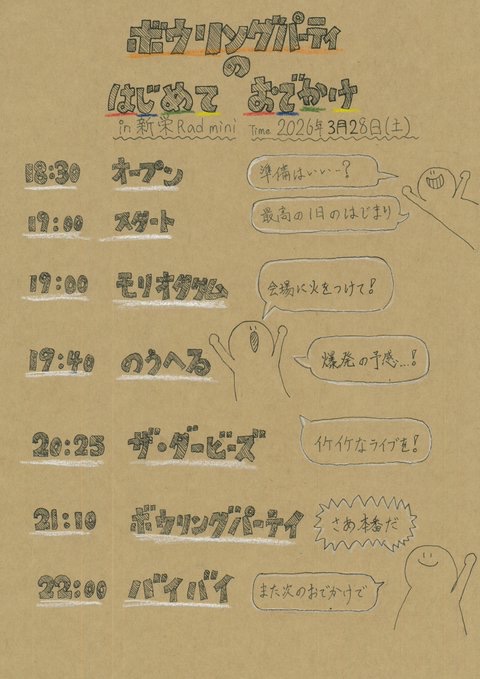 ボウリングパーティ
の
はじめて おでかけ
in 新栄 Rad mini Time 2026年3月28日(土)
18:30 オープン 準備はいいー?
19:00 スタート 最高の1日のはじまり
19:00 モリオダゲム 会場に火をつけて!
19:40 のうへる 爆発の予感…!
20:25 ザ・ダービーズ イケイケなライブを!
21:10 ボウリングパーティ さあ本番だ
22:00 バイバイ また次のおでかけで